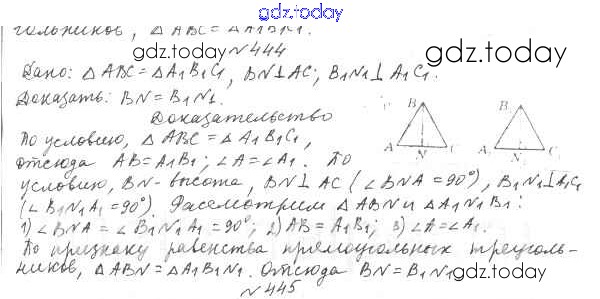 gdz.today
гольников, △ABC = △A1B1C1.
gdz.today №444 gdz.today
Дано: △ABC = △A1B1C1, BN⊥AC; B1N1⊥A1C1.
Доказать: BN = B1N1.
Доказательство
По условию, △ABC = △A1B1C1,
отсюда AB = A1B1; ∠A = ∠A1. По
условию, BN - высота, BN⊥AC (∠BNA = 90°), B1N1⊥A1C1
(∠B1N1A1 = 90°). Рассмотрим △ABN и △A1N1B1:
1) ∠BNA = ∠B1N1A1 = 90°; 2) AB = A1B1; 3) ∠A = ∠A1.
По признаку равенства прямоугольных треуголь-
ников, △ABN = △A1B1N1. Отсюда BN = B1N1
gdz.today
№445
B
A
N
C
B
A1
N
C1